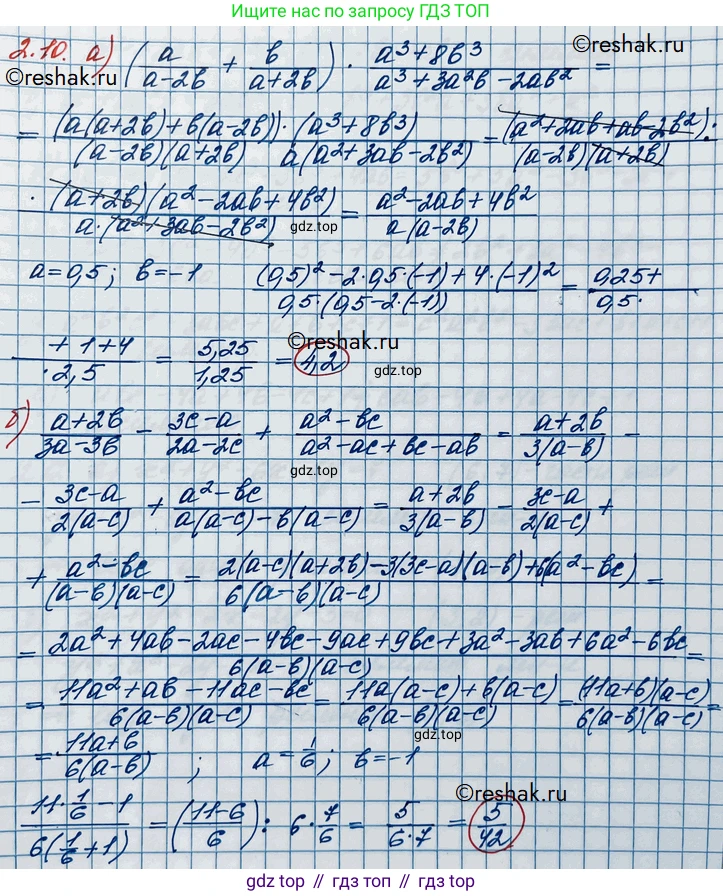 Ищите нас по запросу ГДЗ ТОП
2.10. а) (a/(a-2b) + b/(a+2b)) · (a³+8b³)/(a³+3a²b-2ab²) =
©reshak.ru
©reshak.ru
= (a(a+2b)+b(a-2b))·(a³+8b³)/((a-2b)(a+2b) a(a²+3ab-2b²)) = (a²+2ab+ab-2b²)·/((a-2b)(a+2b))
· (a+2b)(a²-2ab+4b²)/(a·(a²+3ab-2b²)) = (a²-2ab+4b²)/(a(a-2b))
gdz.top
a=0,5; b=-1 ((0,5)²-2·0,5·(-1)+4·(-1)²)/(0,5·(0,5-2·(-1))) = 0,25+/0,5·
©reshak.ru
+1+4/·2,5 = 5,25/1,25 = 4,2
gdz.top
б) (a+2b)/(3a-3b) - (3c-a)/(2a-2c) + (a²-bc)/(a²-ac+bc-ab) = (a+2b)/(3(a-b)) -
gdz.top
- (3c-a)/(2(a-c)) + (a²-bc)/(a(a-c)-b(a-c)) = (a+2b)/(3(a-b)) - (3c-a)/(2(a-c)) +
+ (a²-bc)/((a-b)(a-c)) = (2(a-c)(a+2b)-3(3c-a)(a-b)+6(a²-bc))/(6(a-b)(a-c)) =
= (2a²+4ab-2ac-4bc-9ac+9bc+3a²-3ab+6a²-6bc)/(6(a-b)(a-c)) =
= (11a²+ab-11ac-bc)/(6(a-b)(a-c)) = (11a(a-c)+b(a-c))/(6(a-b)(a-c)) = ((11a+b)(a-c))/(6(a-b)(a-c)) =
gdz.top
= (11a+b)/(6(a-b)) ; a=1/6; b=-1
©reshak.ru
(11·1/6-1)/(6(1/6+1)) = ((11-6)/6) : 6·7/6 = 5/(6·7) = 5/42
gdz.top // гдз топ // gdz.top